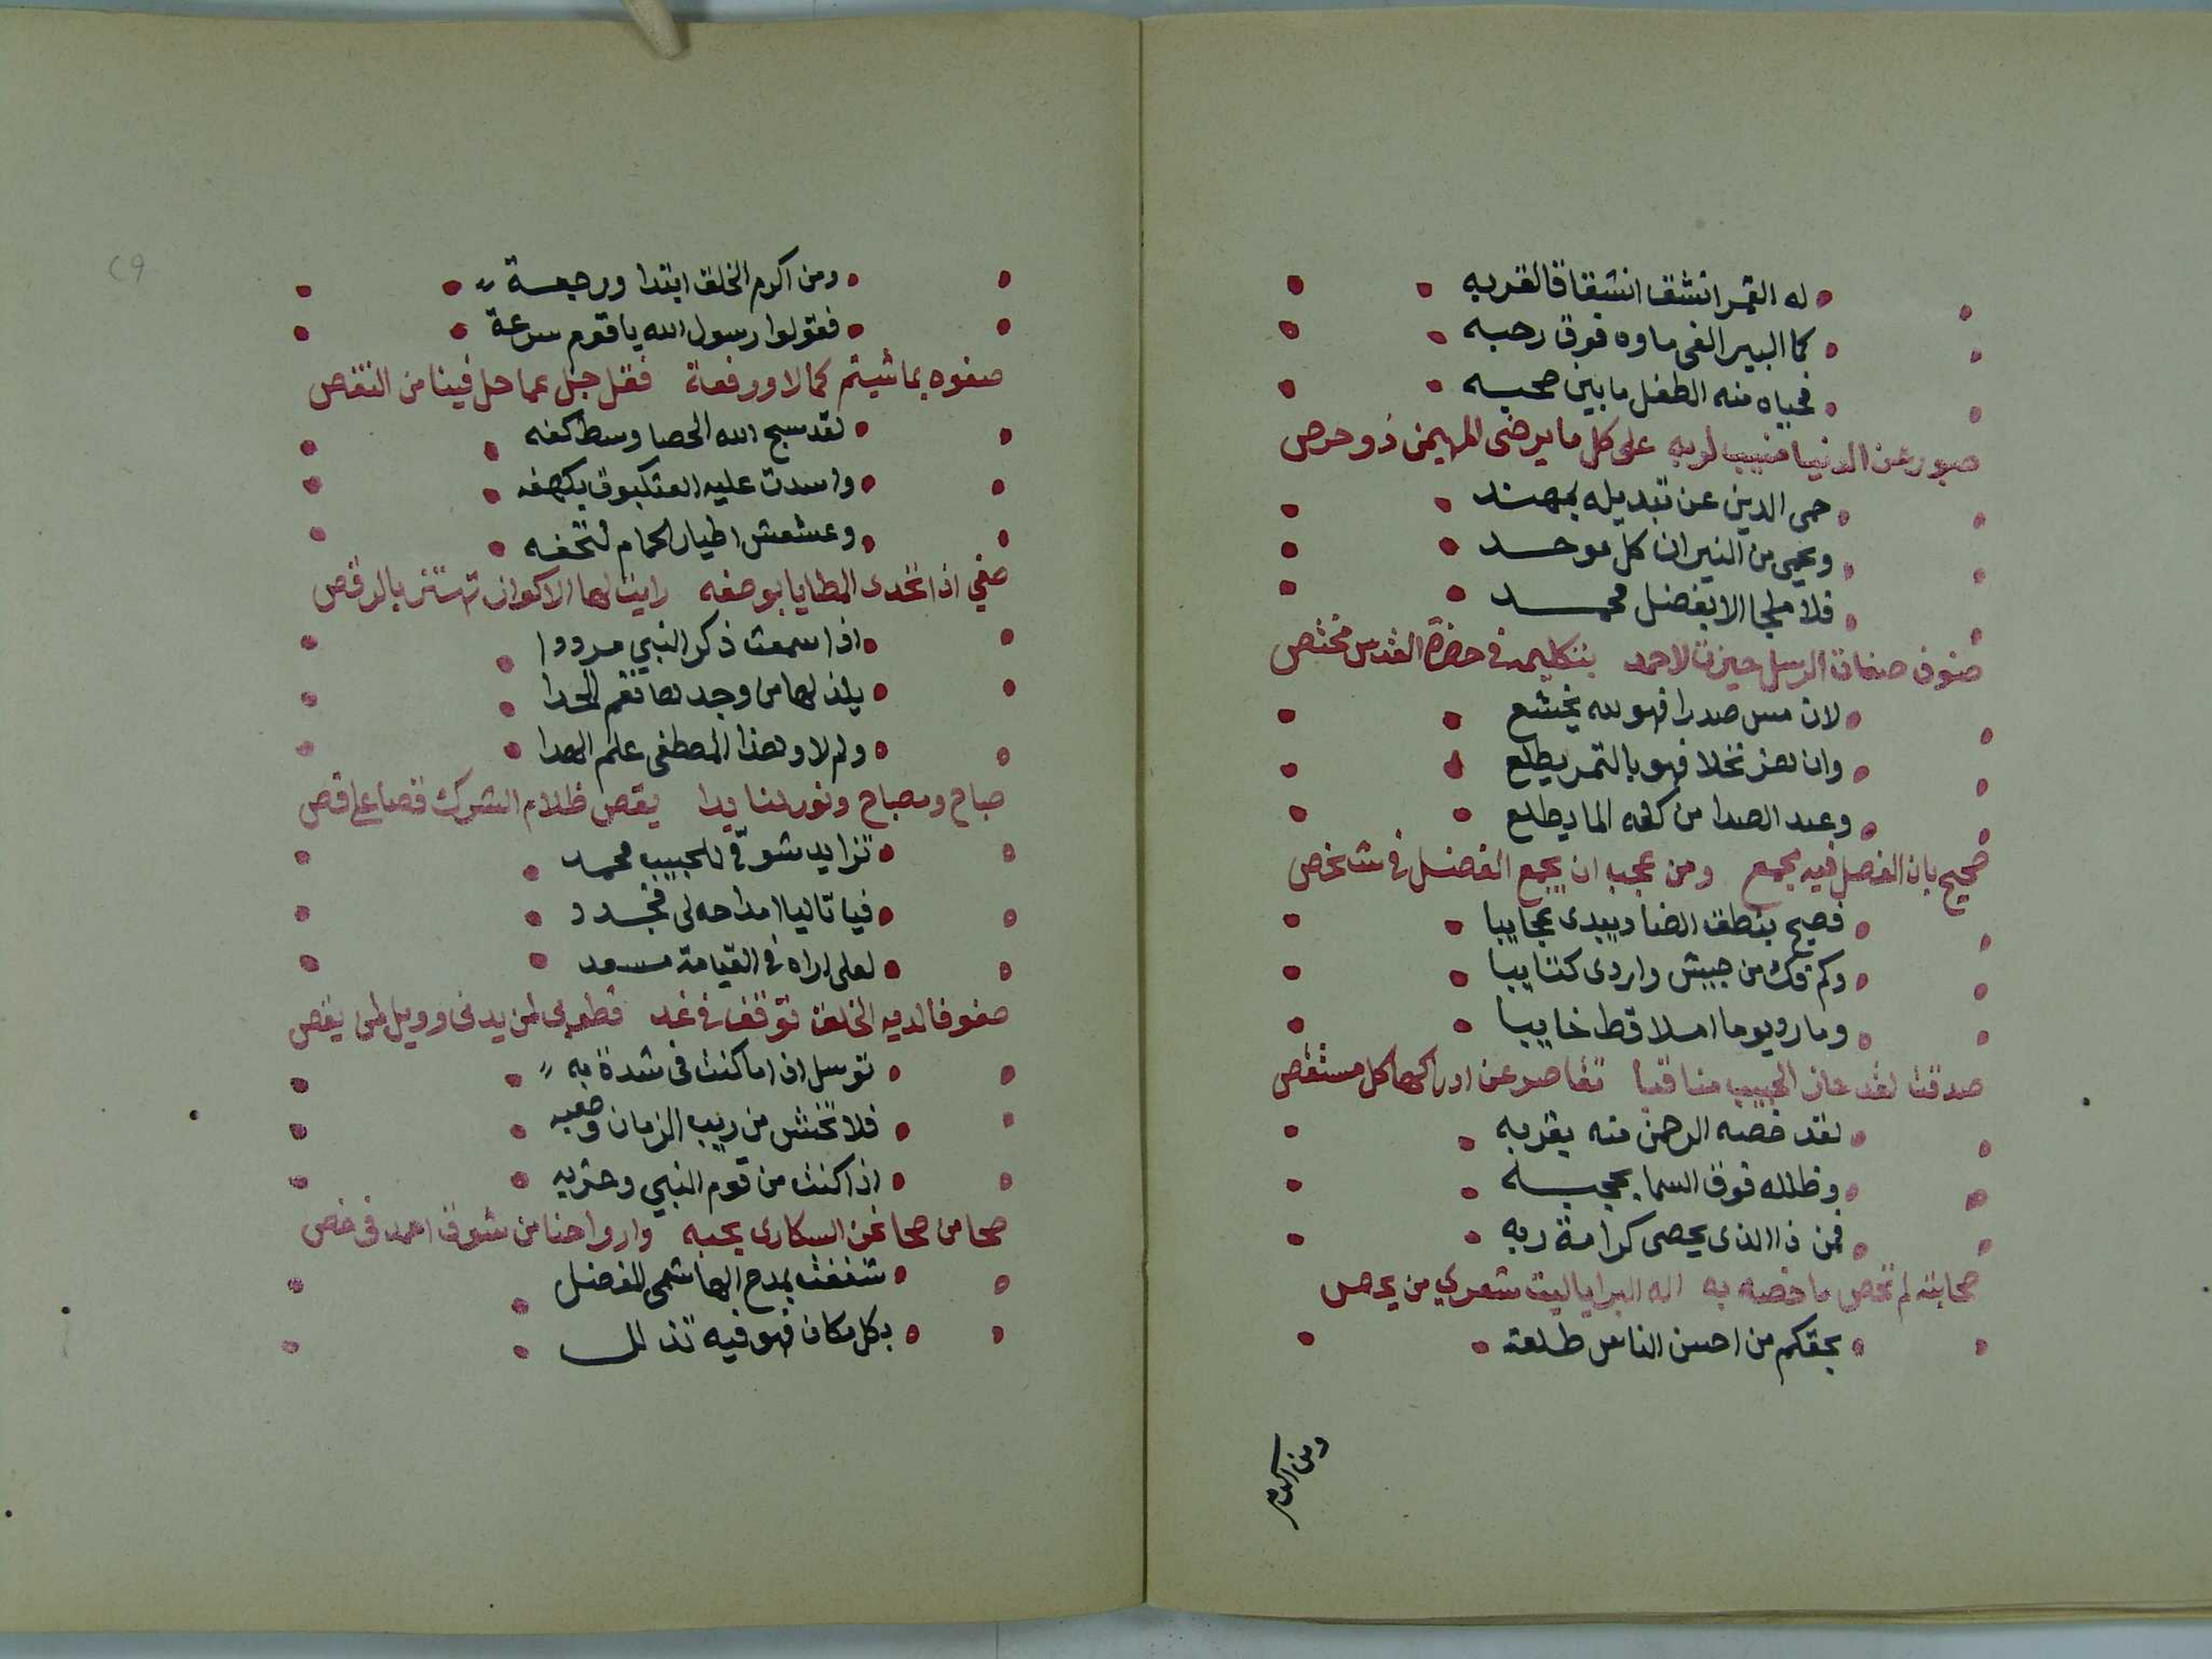 له القمر انشق انشقاقا لقربه
كما البير الفى ماوه فوق رحبه
فحياه منه الطفل ما بين صحبه
صبور عن الدنيا منيب لربه على كل ما يرضى المهيمن ذو حرص
حمى الدين عن تبديله بمهند
ويحيى من النيران كل موحد
فلا ملجا الا بفضل محمد
صنوف صفات الرسل حيزت لاحمد بتكليمه فى حضرة القدس مختص
لان مس صدرا فهو لله يخشع
وان هز نخلا فهو بالتمر يطلع
وعند الصدا من كفه الما يطلع
صحيح بان الفصل فيه مجمع ومن عجب ان يجمع الفضل فى شخص
فصيح بنطق الضاد يبدى عجايبا
وكم فك من جيش واردى كتايبا
وما رد يوما املا قط خايبا
صدقت لقد حاز الحبيب مناقبا تقاصر عن ادراكها كل مستقص
لقد خصه الرحمن منه بقربه
وظلله فوق السما بحجبه
فمن ذا الذى يحصى كرامة ربه
صحابته لم تحص ما خصه به اله البرايا ليت شعري من يحص
بحقكم من احسن الناس طلعة
ومن اكرم
٢٩
ومن اكرم الخلق ابتدا ورجعة
فقولوا رسول الله يا قوم سرعة
صفوه بما شيتم كمالا ورفعة فقل جل عما حل فينا من النقص
لقد سبح الله الحصا وسط كفه
واسدت عليه العنكبوت بكهفه
وعشعش اطيار الحمام لتحفه
صفي اذا تحدى المطايا بوصفه رايت لها الاكوان تهتز بالرقص
اذا سمعت ذكر النبي مرددا
يلذ لها من وجدها نغم الحدا
ولم لا وهذا المصطفى علم الهدا
صباح ومصباح ونور لنا بدا يقص ظلام الشرك قصا على قص
تزايد شوقى للحبيب محمد
فيا تاليا امداحه لى فجدد
لعلى اراه فى القيامة مسعد
صفوفا لديه الخلق توقف فى غد فطوبى لمن يدنى وويل لمن يقص
توسل اذا ما كنت فى شدة به
فلا تخش من ريب الزمان وصعبه
اذا كنت من قوم النبي وحزبه
صحا من صحا نحن السكارى بحبه وارواحنا من شوق احمد فى خص
شغفت بمدح الهاشمى المفضل
بكل مكان فهو فيه تذلل